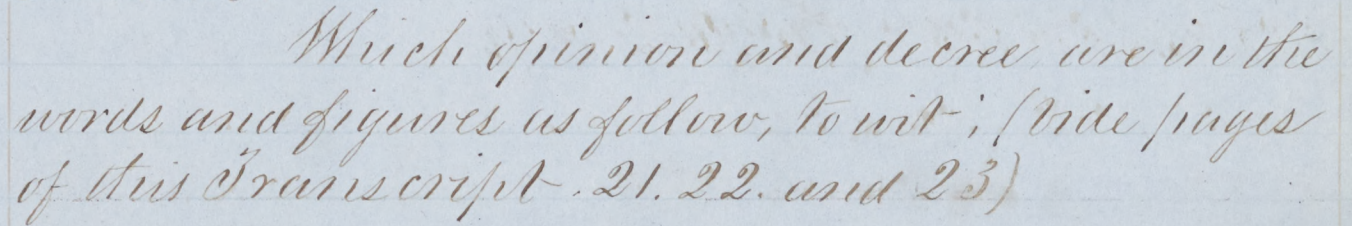 Which opinion and decree are in the
words and figures as follow, to wit; (vide pages
of this Transcript. 21. 22. and 23)